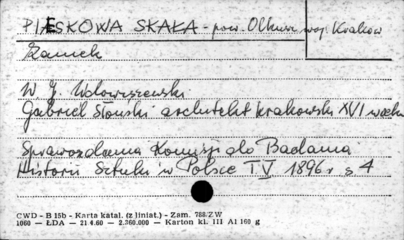 PIESKOWA SKAŁA - pow. Olkusz woj. Kraków
Zamek
W J. Wdowiszewski
Gabriel Słoński architekt krakowski XVI wieku
Sprawozdania Komisji do Badania
Historii Sztuki w Polsce T V 1896 r s 4
CWD - B 15b - Karta katal. (z liniat.) - Zam. 788/ZW
1060 — ŁDA — 21 4.60 — 2.360.000 — Karton kl. III A1 160 g